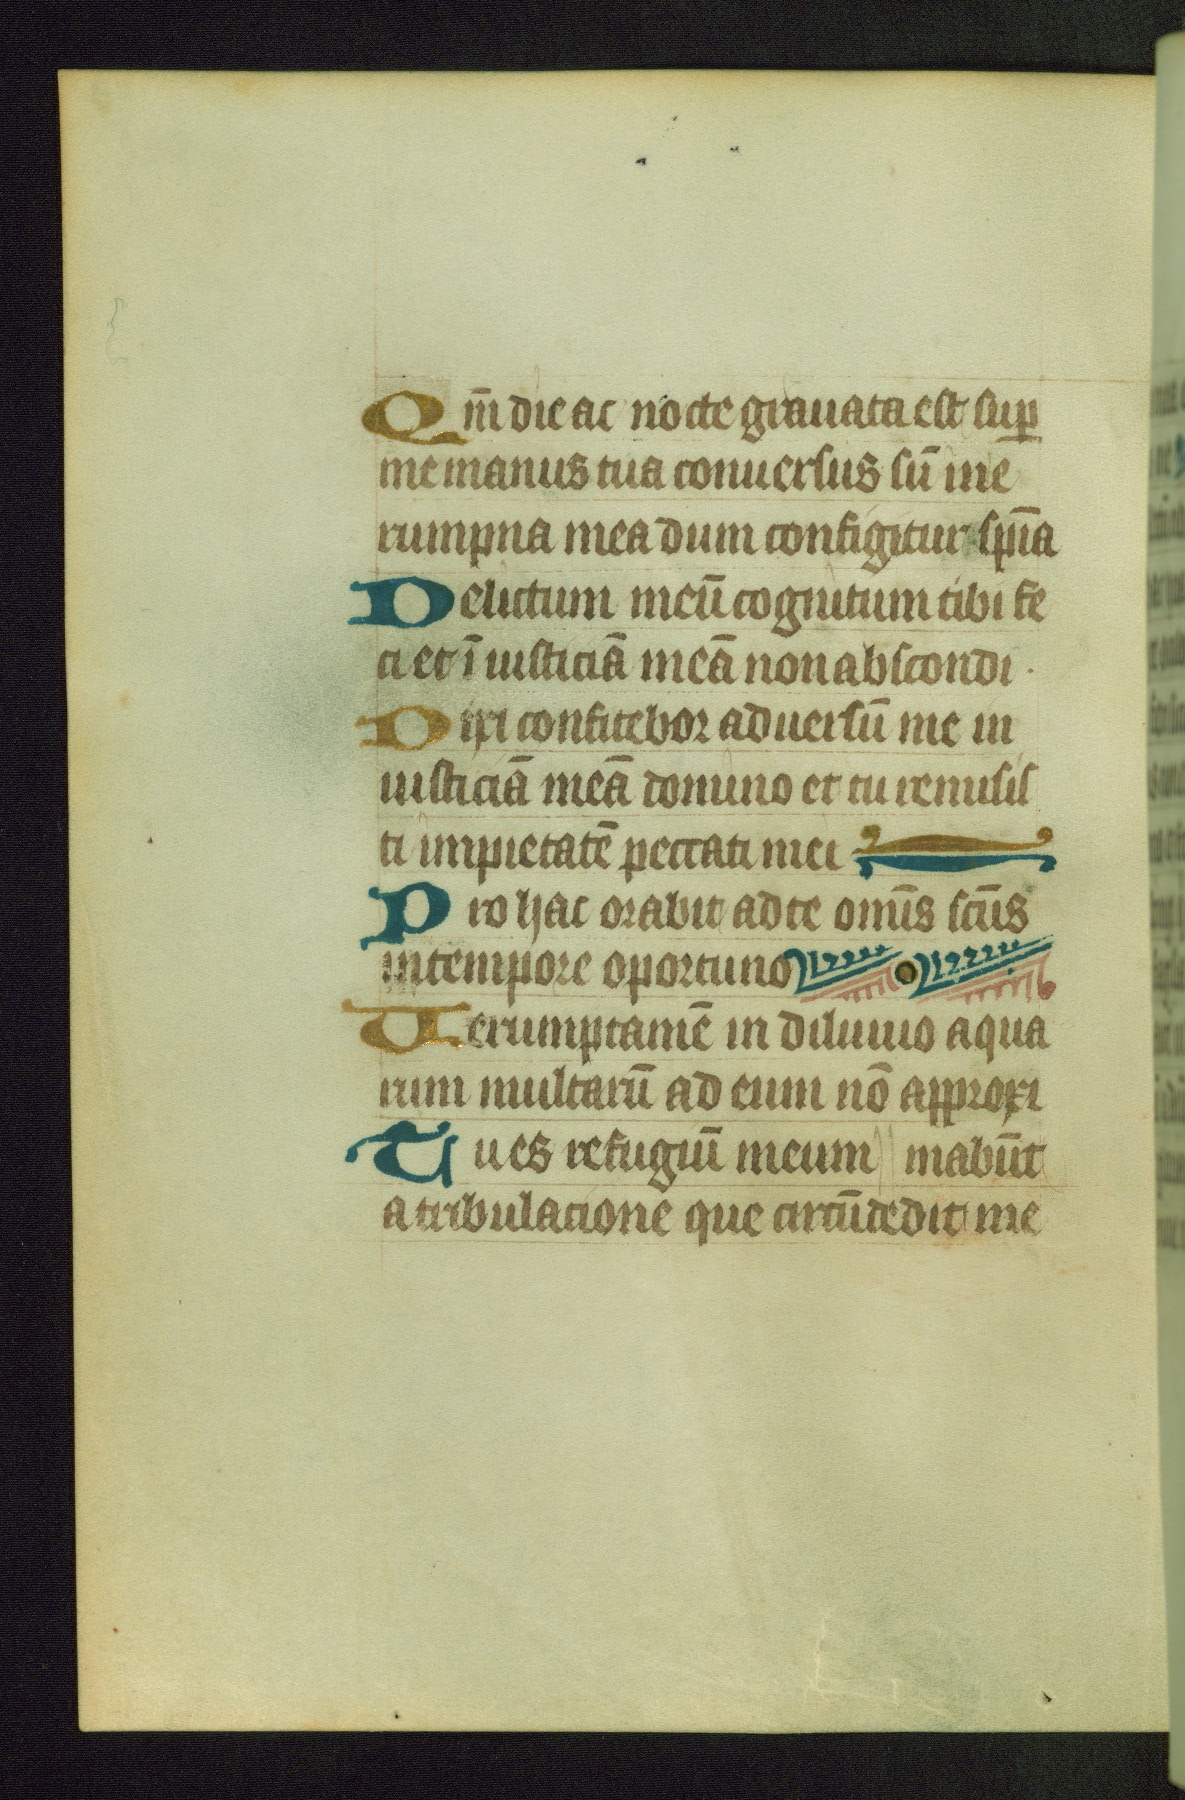 Qm̄ die ac nocte grauata est sup̱
me manus tua conuersus sū in e
rumpna mea dum configitur sp̄ia
Delictum meū cognitum tibi fe
ci et ī iusticiā meā non abscondi ·
Dixi confitebor aduersū me in
iusticiā meā domino et tu remisis
ti impietatē peccati mei
Pro hac orabit ad te om̄is sc̄us
in tempore oportuno
Uerumptamē in diluuio aqua
rum multarū ad eum nō approxi
Tu es refugiū meum mabūt
a tribulacione que circūdedit me